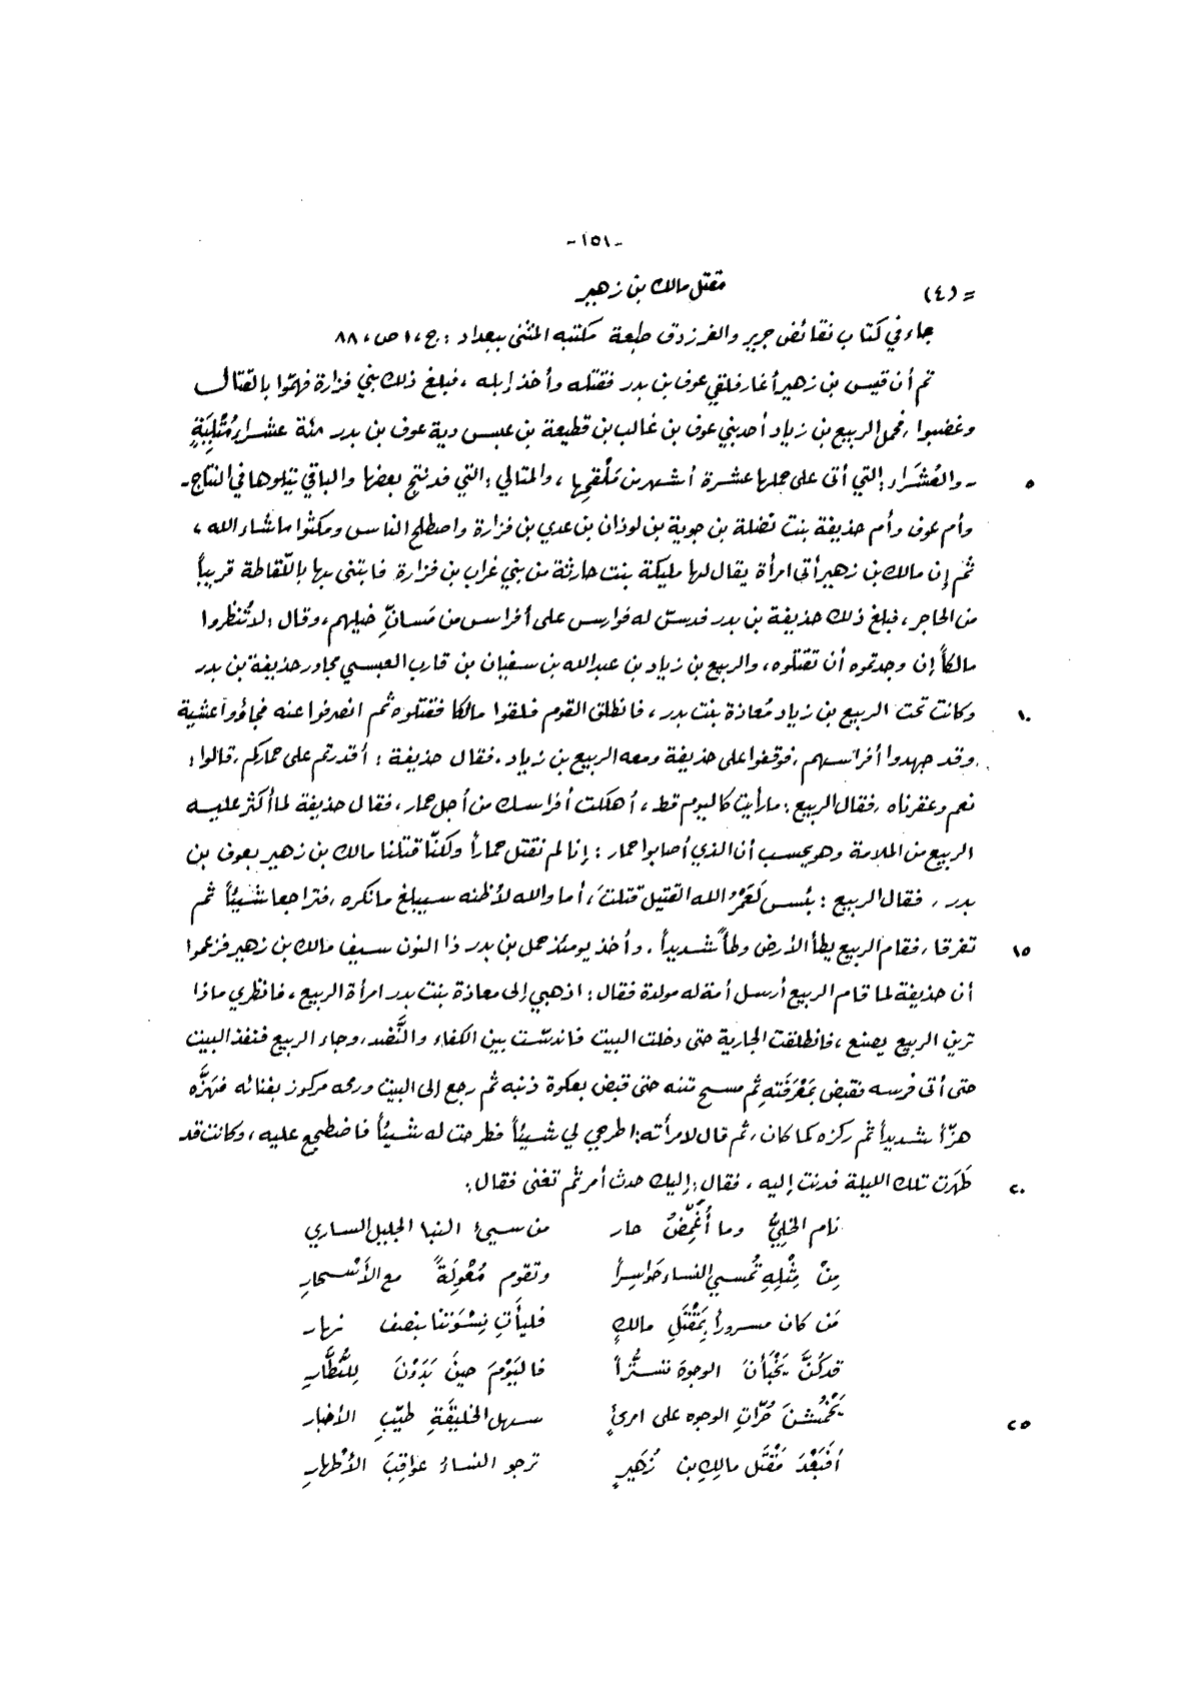 -١٥١-
= (٤) مقتل مالك بن زهير
جاء في كتاب نقائض جرير والفرزدق طبعة مكتبه المثنى ببغداد : ج،١ ص، ٨٨
ثم أن قيس بن زهير أغار فلقي عوف بن بدر فقتله وأخذ إبله ، فبلغ ذلك بني فزارة فهمّوا بالقتال
وغضبوا ، فحمل الربيع بن زياد أحد بني عوف بن غالب بن قطيعة بن عبس دية عوف بن بدر مئة عشراء مُتْلِيَةٍ
٥ - والعُشَرَاء : التي أتى على حملها عشرة أشهر من مَلْقحِها ، والمتالي : التي قد نتج بعضها والباقي يتلوها في النتاج -
وأم عوف وأم حذيفة بنت نضلة بن جوية بن لوذان بن عدي بن فزارة واصطلح الناس ومكثوا ما شاء الله ،
ثم إن مالك بن زهير أتى امرأة يقال لها مليكة بنت حارثة من بني غراب بن فزارة فابتنى بها باللّقاطة قريباً
من الحاجر ، فبلغ ذلك حذيفة بن بدر فدسّ له فوارس على أفراس من مَسانِّ خيلهم ، وقال : لا تُنظروا
مالكاً إن وجدتموه أن تقتلوه ، والربيع بن زياد بن عبد الله بن سفيان بن قارب العبسي مجاور حذيفة بن بدر
١٠ وكانت تحت الربيع بن زياد مُعاذة بنت بدر ، فانطلق القوم فلقوا مالكا فقتلوه ثم انصرفوا عنه فجاؤوا عشية
وقد جهدوا أفراسهم ، فوقفوا على حذيفة ومعه الربيع بن زياد ، فقال حذيفة : أقدرتم على حماركم ، قالوا :
نعم وعقرناه ، فقال الربيع : ما رأيت كاليوم قط ، أهلكت أفراسك من أجل حمار ، فقال حذيفة لما أكثر عليه
الربيع من الملامة وهو يحسب أن الذي أصابوا حمار : إنا لم نقتل حماراً ولكنّا قتلنا مالك بن زهير بعوف بن
بدر ، فقال الربيع : بئس لَعَمْرُ الله القتيل قتلتَ ، أما والله لأظنه سيبلغ ما نكره ، فتراجعا شيئاً ثم
١٥ تفرقا ، فقام الربيع يطأ الأرض وطأً شديداً ، وأخذ يومئذ حمل بن بدر ذا النون سيف مالك بن زهير فزعموا
أن حذيفة لما قام الربيع أرسل أمة له مولدة فقال : اذهبي إلى معاذة بنت بدر امرأة الربيع ، فانظري ماذا
ترين الربيع يصنع ، فانطلقت الجارية حتى دخلت البيت فاندسّت بين الكفاء والنَّضد ، وجاء الربيع فنفذ البيت
حتى أتى فرسه فقبض بمَعْرَفَتهِ ثم مسح متنه حتى قبض بعكوة ذنبه ثم رجع إلى البيت ورمحه مركوز بفنائه فهَزَّه
هزّاً شديداً ثم ركزه كما كان ، ثم قال لامرأته : اطرحي لي شيئاً فطرحت له شيئاً فاضطجع عليه ، وكانت قد
٢٠ طَهَرت تلك الليلة فدنت إليه ، فقال : إليك حدث أمر ثم تغنى فقال :
نام الخليُّ وما أُغَمِّضُ حار من سيئ النبا الجليل الساري
مِنْ مِثْلِهِ تُمسي النساء حَواسِراً وتقوم مُعْوِلَةً مع الأسْحارِ
مَن كان مسروراً بمَقْتَلِ مالكٍ فليأتِ نِسْوَتنا بنصف نهار
قد كُنَّ يَخْبَأنَ الوجوهَ تستُّراً فاليَوْمَ حينَ بَدَوْنَ لِلنُّظّارِ
٢٥ يَخْمُشْنَ حُرَّاتِ الوجوه على امرئٍ سهل الخليقَةِ طيّبِ الأخبار
أفَبَعْدَ مَقْتَل مالِكِ بن زُهَيرٍ ترجو النساءُ عواقِبَ الأطْهارِ